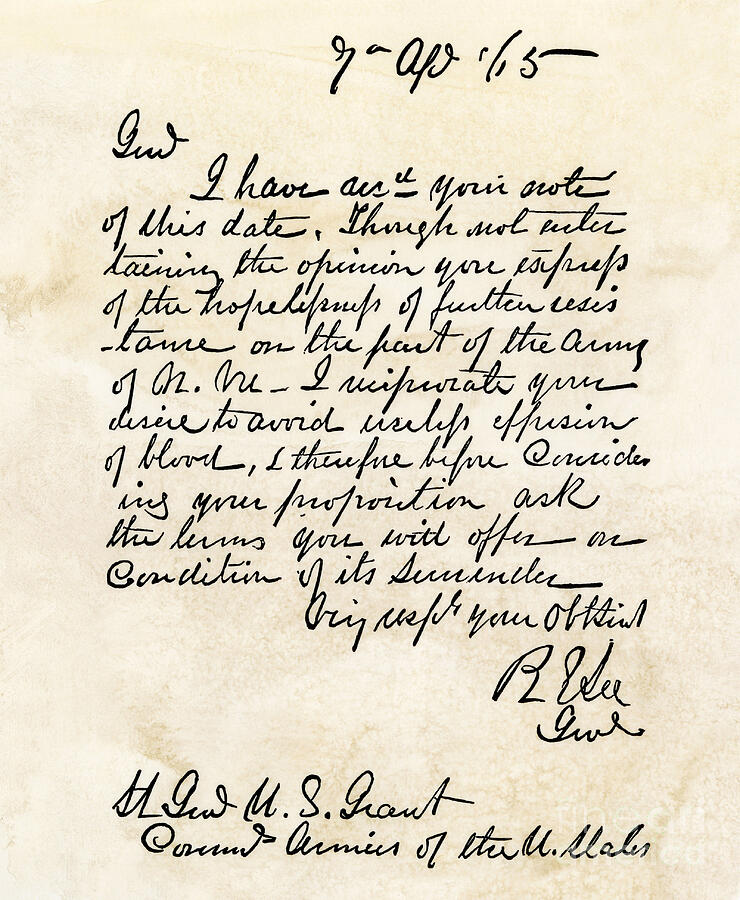 7th Apl '65
Genl
I have recd your note
of this date. Though not enter
taining the opinion you express
of the hopelessness of further resis
-tance on the part of the Army
of N. Va - I reciprocate your
desire to avoid useless effusion
of blood, & therefore before consider
ing your proposition ask
the terms you will offer on
condition of its surrender
Very respy your obt Servt
R E Lee
Genl
Lt Genl U. S. Grant
Commd Armies of the U. States